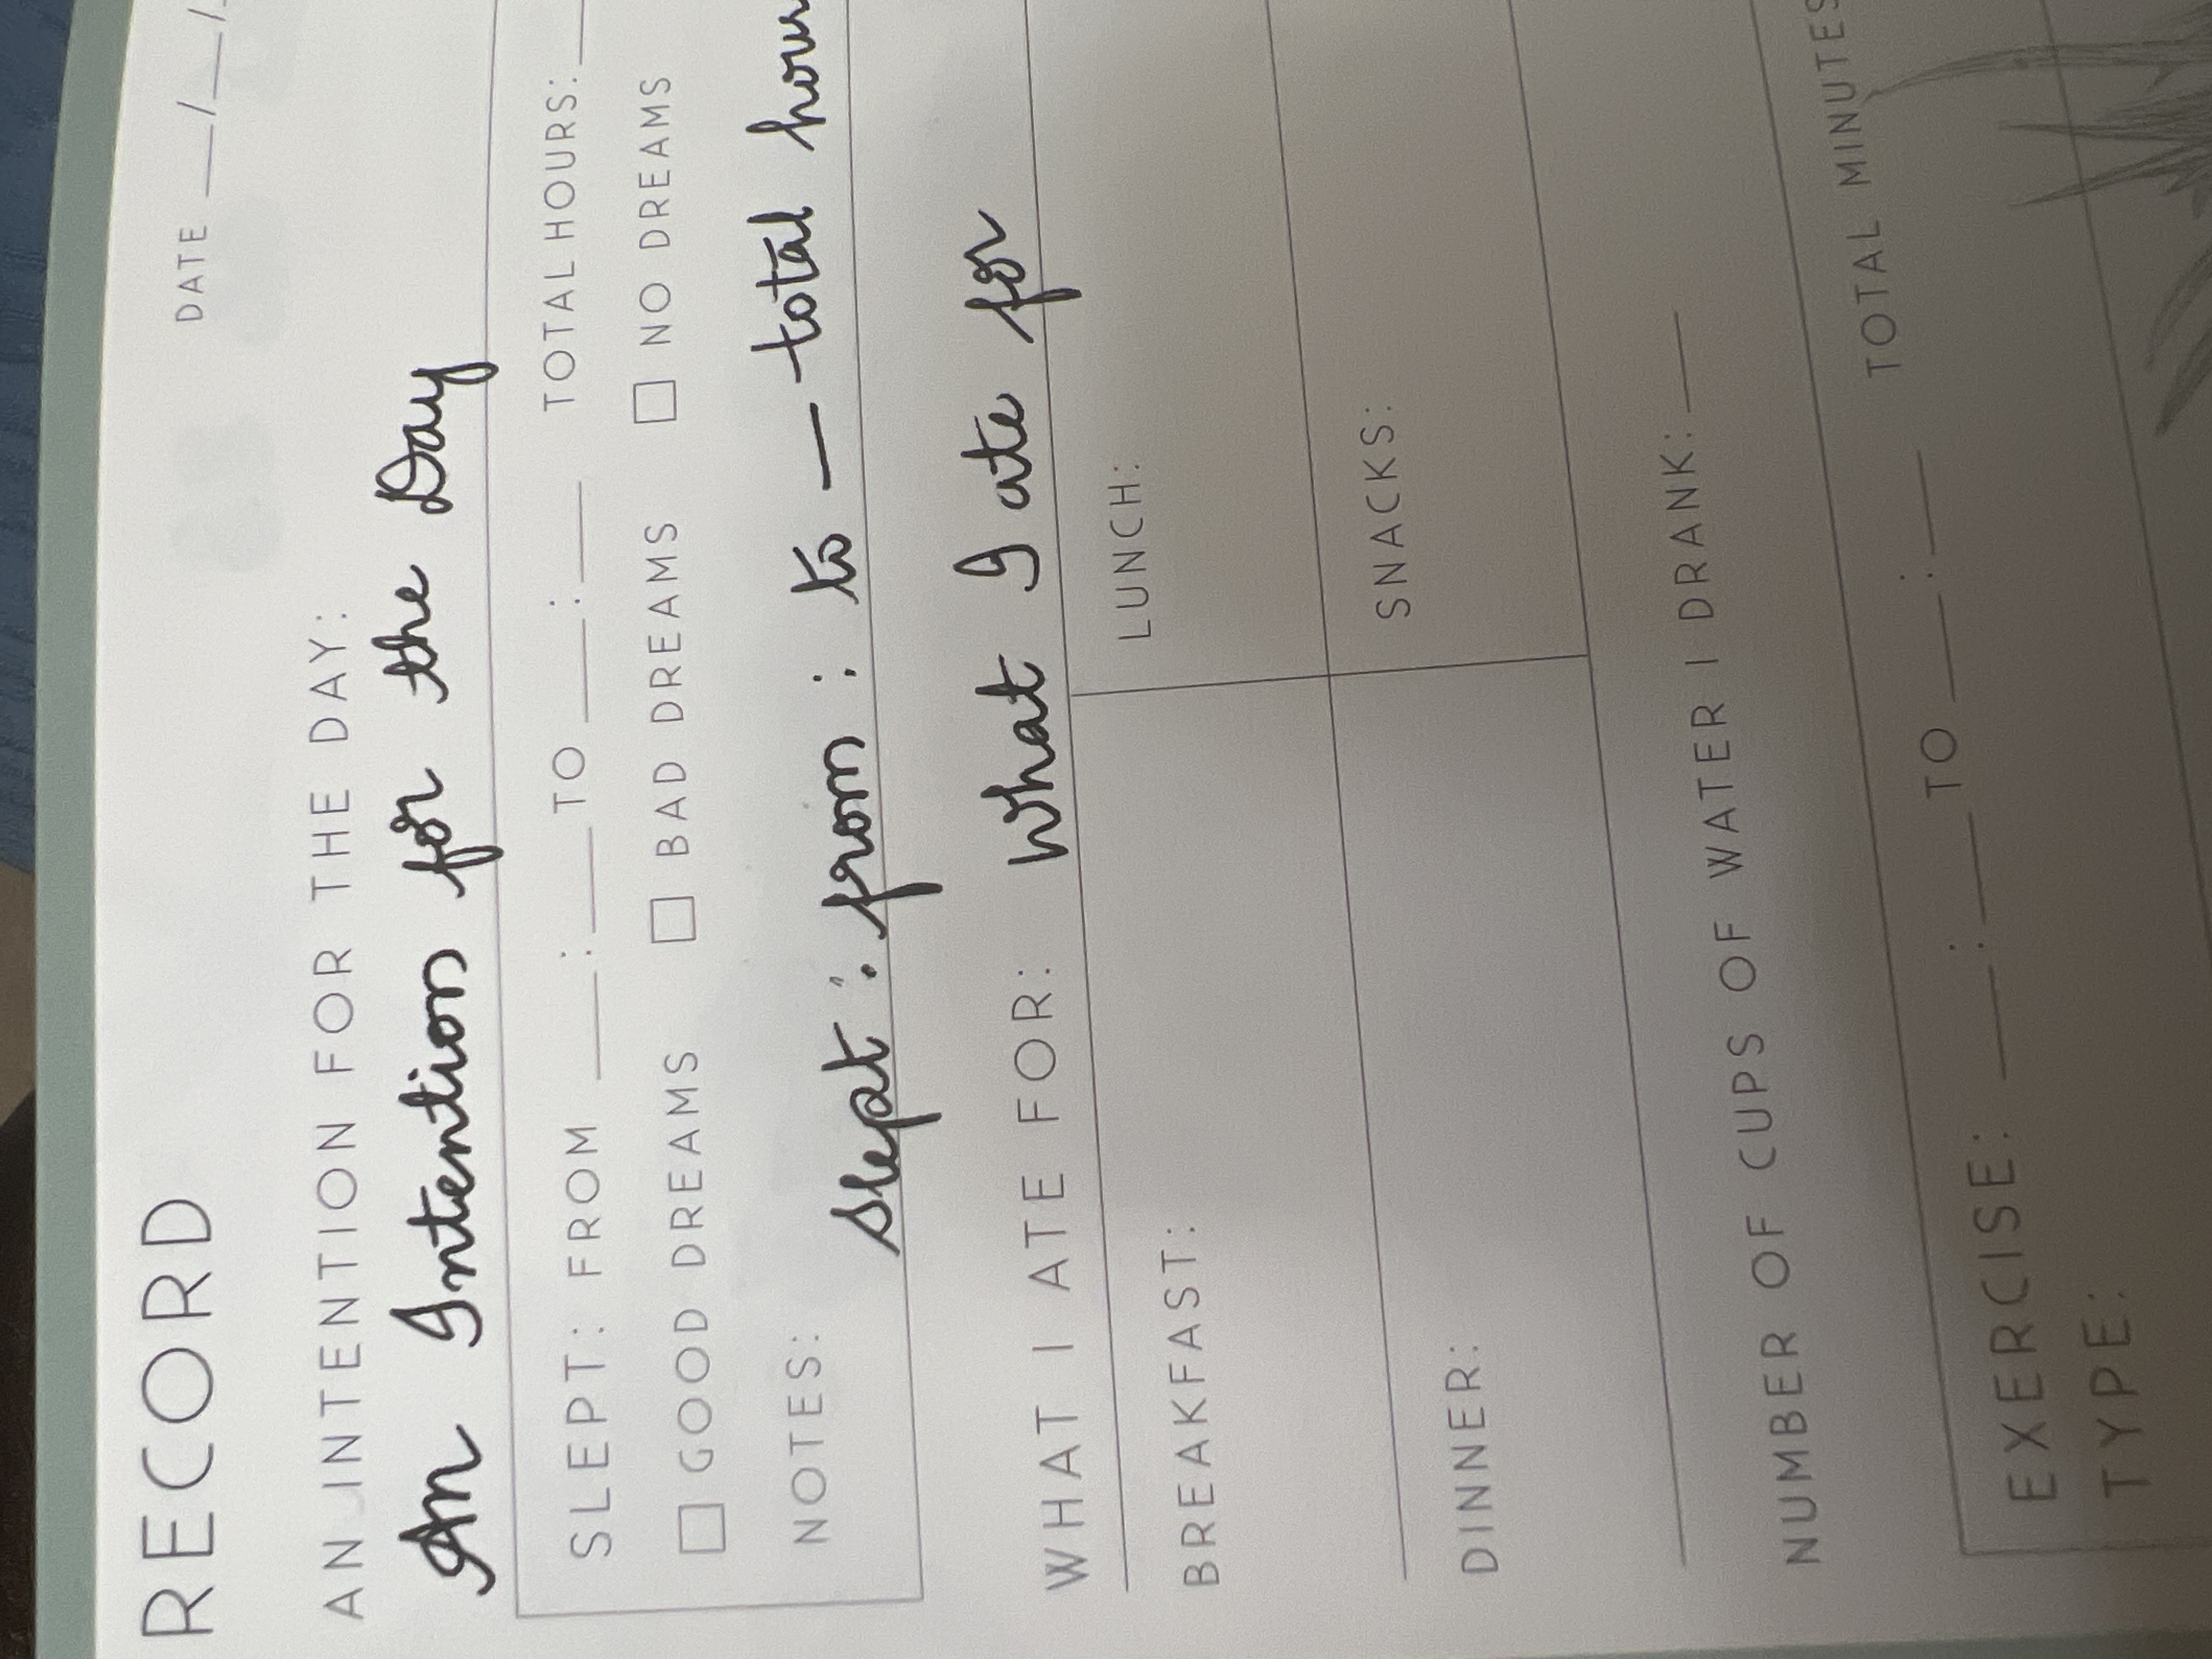 RECORD DATE __/__/
AN INTENTION FOR THE DAY:
An Intention for the Day
SLEPT: FROM __:__ TO __:__ TOTAL HOURS:__
☐ GOOD DREAMS ☐ BAD DREAMS ☐ NO DREAMS
NOTES:
Slept: from : to — total hour
WHAT I ATE FOR: What I ate for
BREAKFAST: LUNCH:
DINNER: SNACKS:
NUMBER OF CUPS OF WATER I DRANK:__
EXERCISE: __:__ TO __:__ TOTAL MINUTES
TYPE: